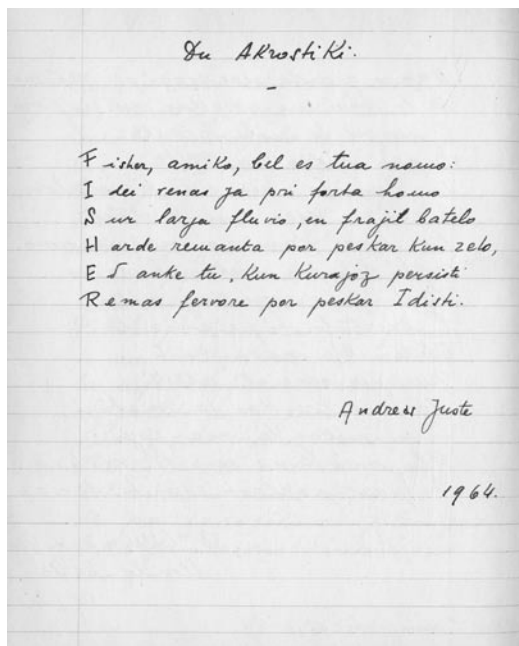 Du Akrostiki.
-
Fisher, amiko, bel es tua nomo:
Idei renas ja pri forta homo
Sur larja fluvio, en frajil batelo
Harde remanta por peskar kun zelo,
Ed anke tu, kun kurajoz persisti
Remas fervore por peskar Idisti.
Andreas Juste
1964.